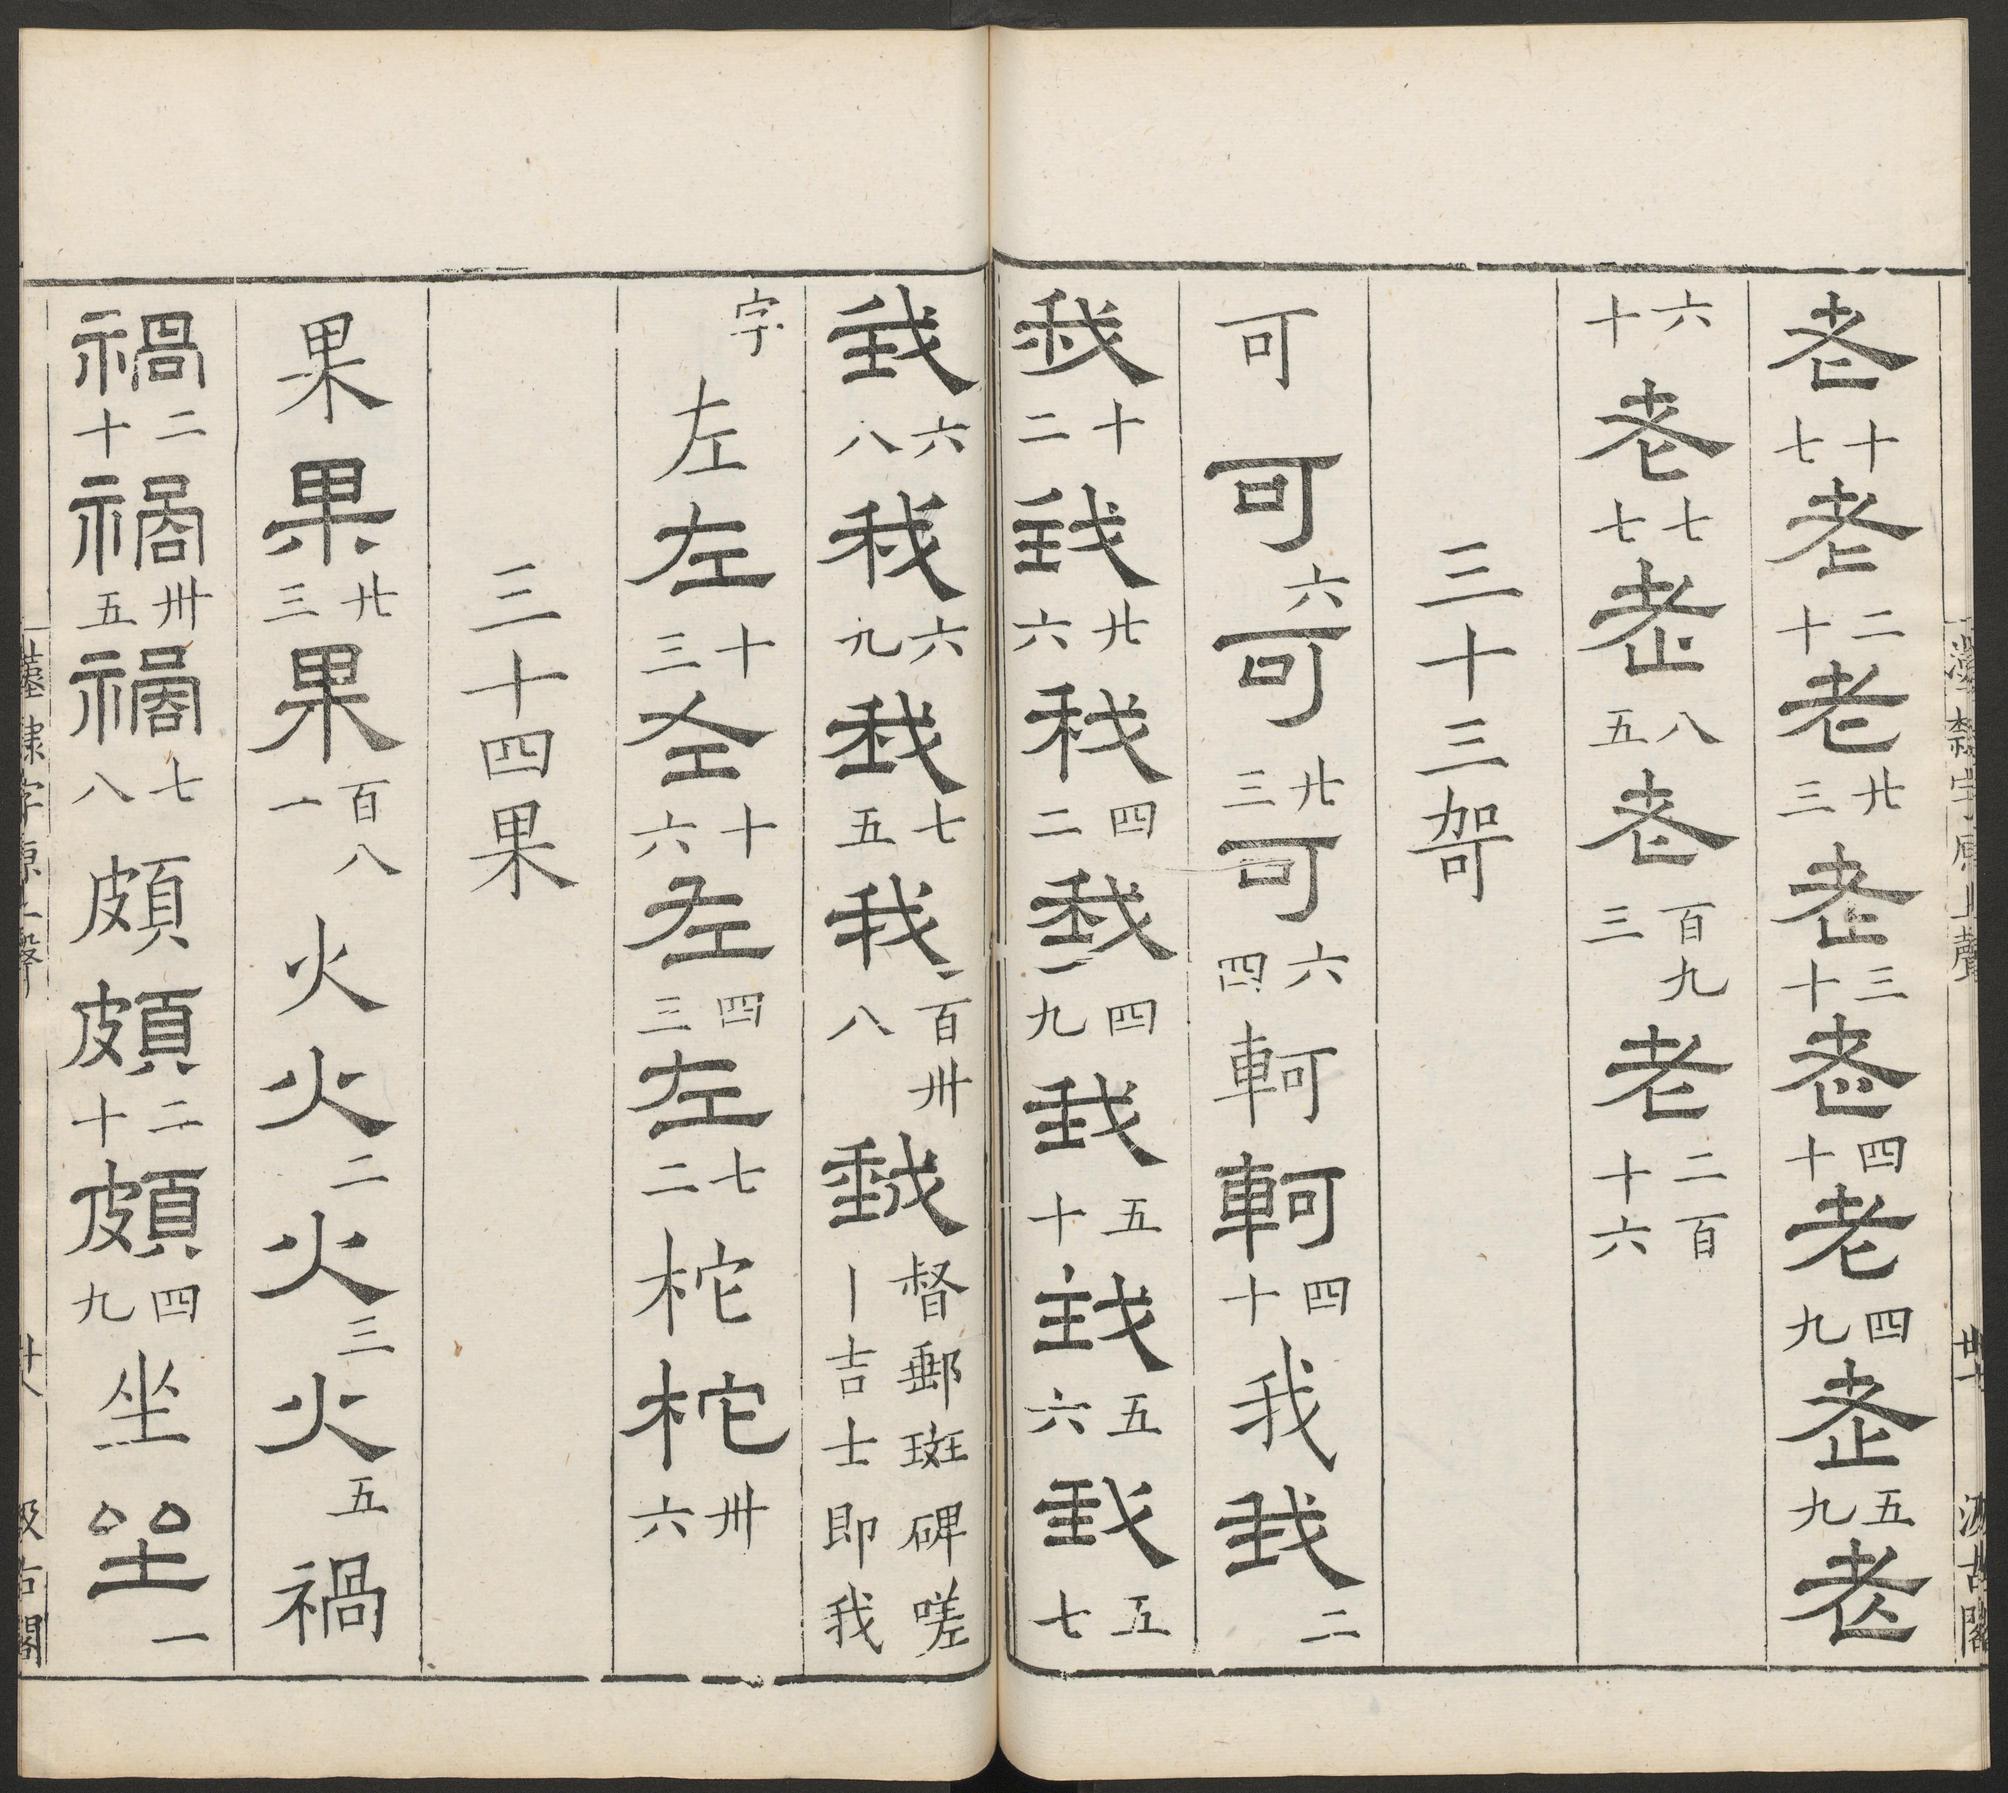 老十七老二十老廿三老三十老四十老四九老五九老
六十老七七老八五老百九三老二百十六
三十三哿
可可六可廿三可六四軻軻四十我我二
我十二我廿六我四二我四九我五十我五六我五七
我六八我六九我七五我百卌八我督郵斑碑嗟丨吉士即我
字左左十三左十六左四三左七二柁柁卌六
三十四果
果果廿三果百八一火火二火三火五禍
禍二十禍卌五禍七八頗頗二十頗四九坐坐一
漢隸字原上聲
汲古閣